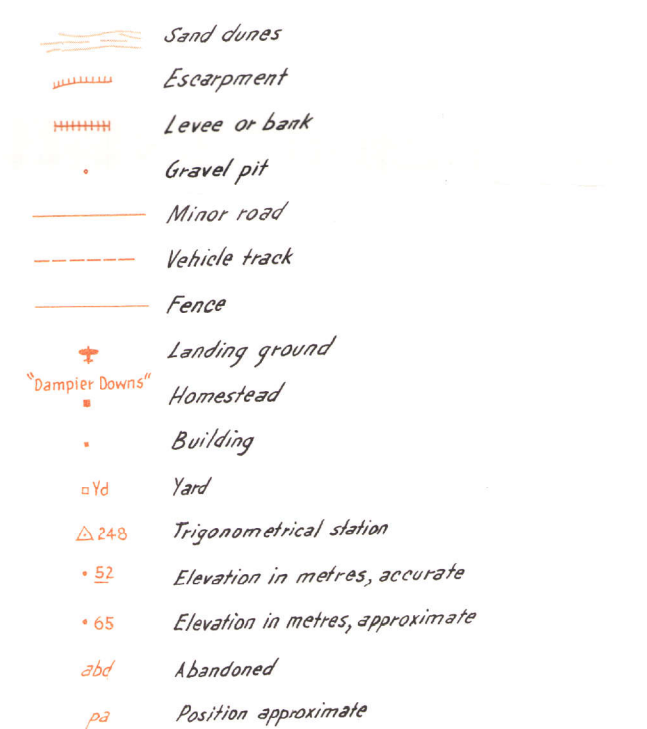 Sand dunes
Escarpment
Levee or bank
Gravel pit
Minor road
Vehicle track
Fence
Landing ground
"Dampier Downs"
Homestead
Building
Yd Yard
248 Trigonometrical station
52 Elevation in metres, accurate
65 Elevation in metres, approximate
abd Abandoned
pa Position approximate